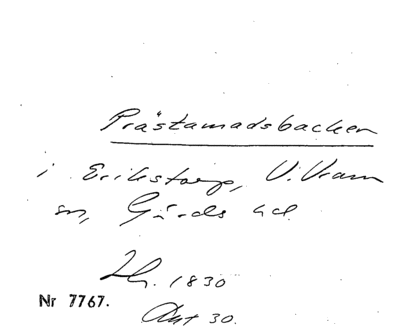 Prästamadsbacken
i Erikstorp, V. Vram
sn, Gärds hd.
1830
Nr 7767.
Akt 30.